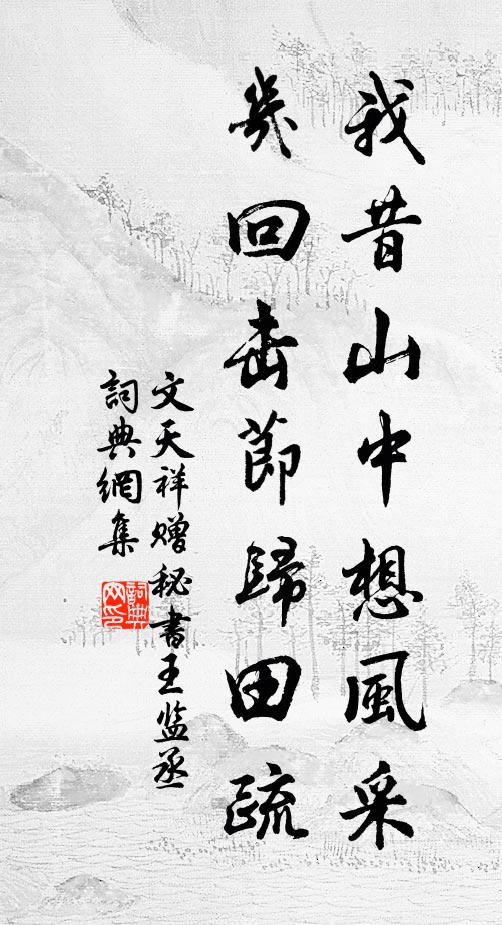 我昔山中想風采
幾回击節歸田疏
文天祥赠秘書王监丞
詞典網集
詞典网印